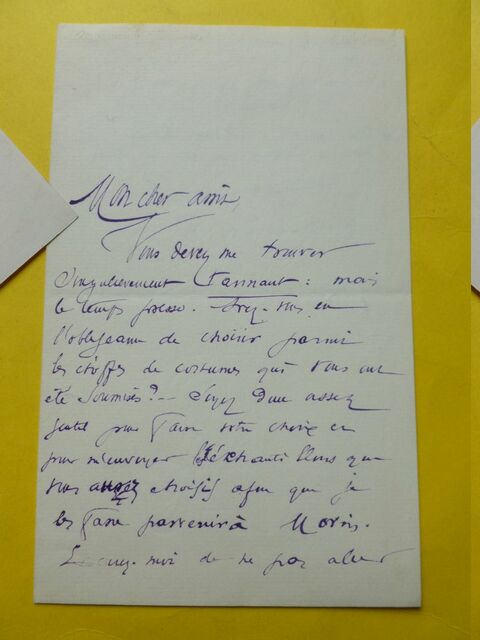 Mon cher ami,
Vous devez me trouver
singulièrement tannant : mais
le temps presse. Avez-vous eu
l'obligeance de choisir parmi
les étoffes de costumes qui vous ont
été soumises ? - Soyez donc assez
gentil pour faire votre choix et
pour m'envoyer l'échantillons que
vous avez choisis afin que je
les fasse parvenir à Morin.
Excusez-moi de ne pas aller